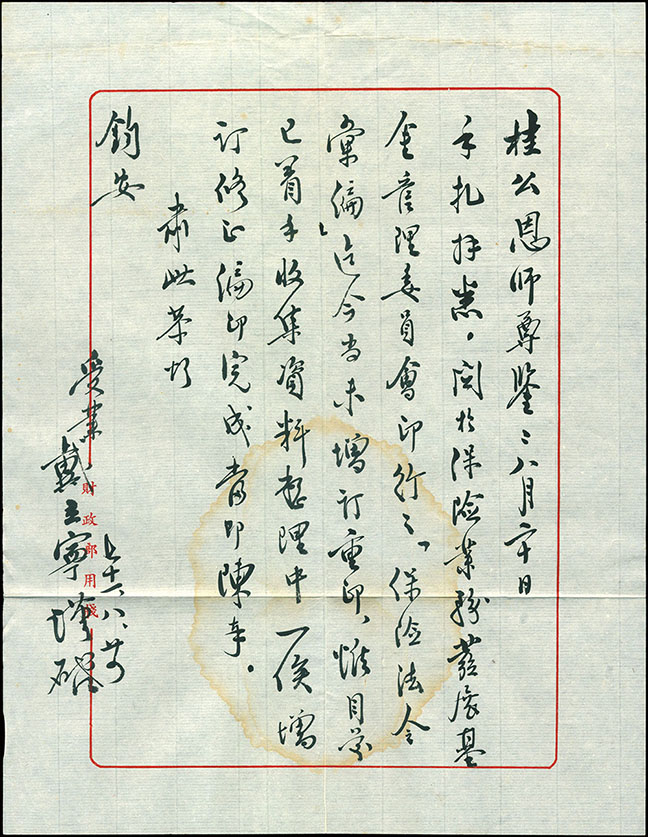 桂公恩師尊鑒：八月二十日
手札拜悉。関於保險業務發展基
金管理委員會印行之「保險法令
彙編」迄今尚未增訂重印、惟目前
已着手收集資料整理中一俟增
訂修正編印完成當即陳奉。
肅此恭叩
鈞安
受業
戴立寧
財政部用箋